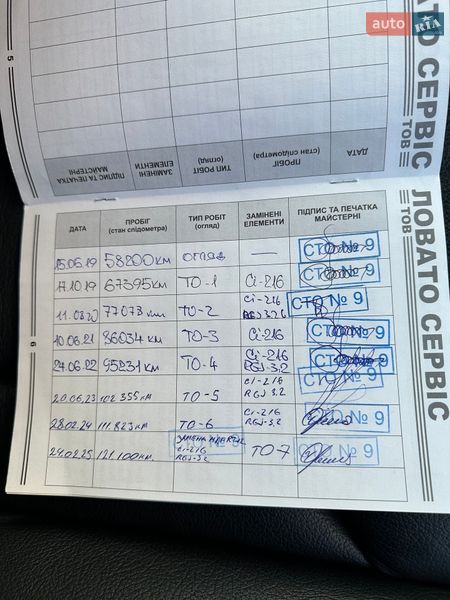 auto RIA
ЛОВАТО СЕРВІС
ТОВ
5
ДАТА
ПРОБІГ
(стан спідометра)
ТИП РОБІТ
(огляд)
ЗАМІНЕНІ
ЕЛЕМЕНТИ
ПІДПИС ТА ПЕЧАТКА
МАЙСТЕРНІ
ЛОВАТО СЕРВІС
ТОВ
6
ДАТА
ПРОБІГ
(стан спідометра)
ТИП РОБІТ
(огляд)
ЗАМІНЕНІ
ЕЛЕМЕНТИ
ПІДПИС ТА ПЕЧАТКА
МАЙСТЕРНІ
15.06.19 58200км огляд — СТО № 9
17.10.19 67395км ТО-1 Ci-216 СТО № 9
11.08.20 77073км ТО-2 Ci-216 RGJ 3.2 СТО № 9
10.06.21 86034км ТО-3 Ci-216 СТО № 9
24.06.22 95231км ТО-4 Ci-216 RGJ-3,2 СТО № 9
СТО № 9
20.06.23 102 355 км ТО-5 Ci-216 RGJ-3.2
28.02.24 111.823 км ТО-6 Ci-216 RGJ-3.2 СТО № 9
24.02.25 121.100 км. Ci-216 RGJ-3,2 ТО-7 СТО № 9